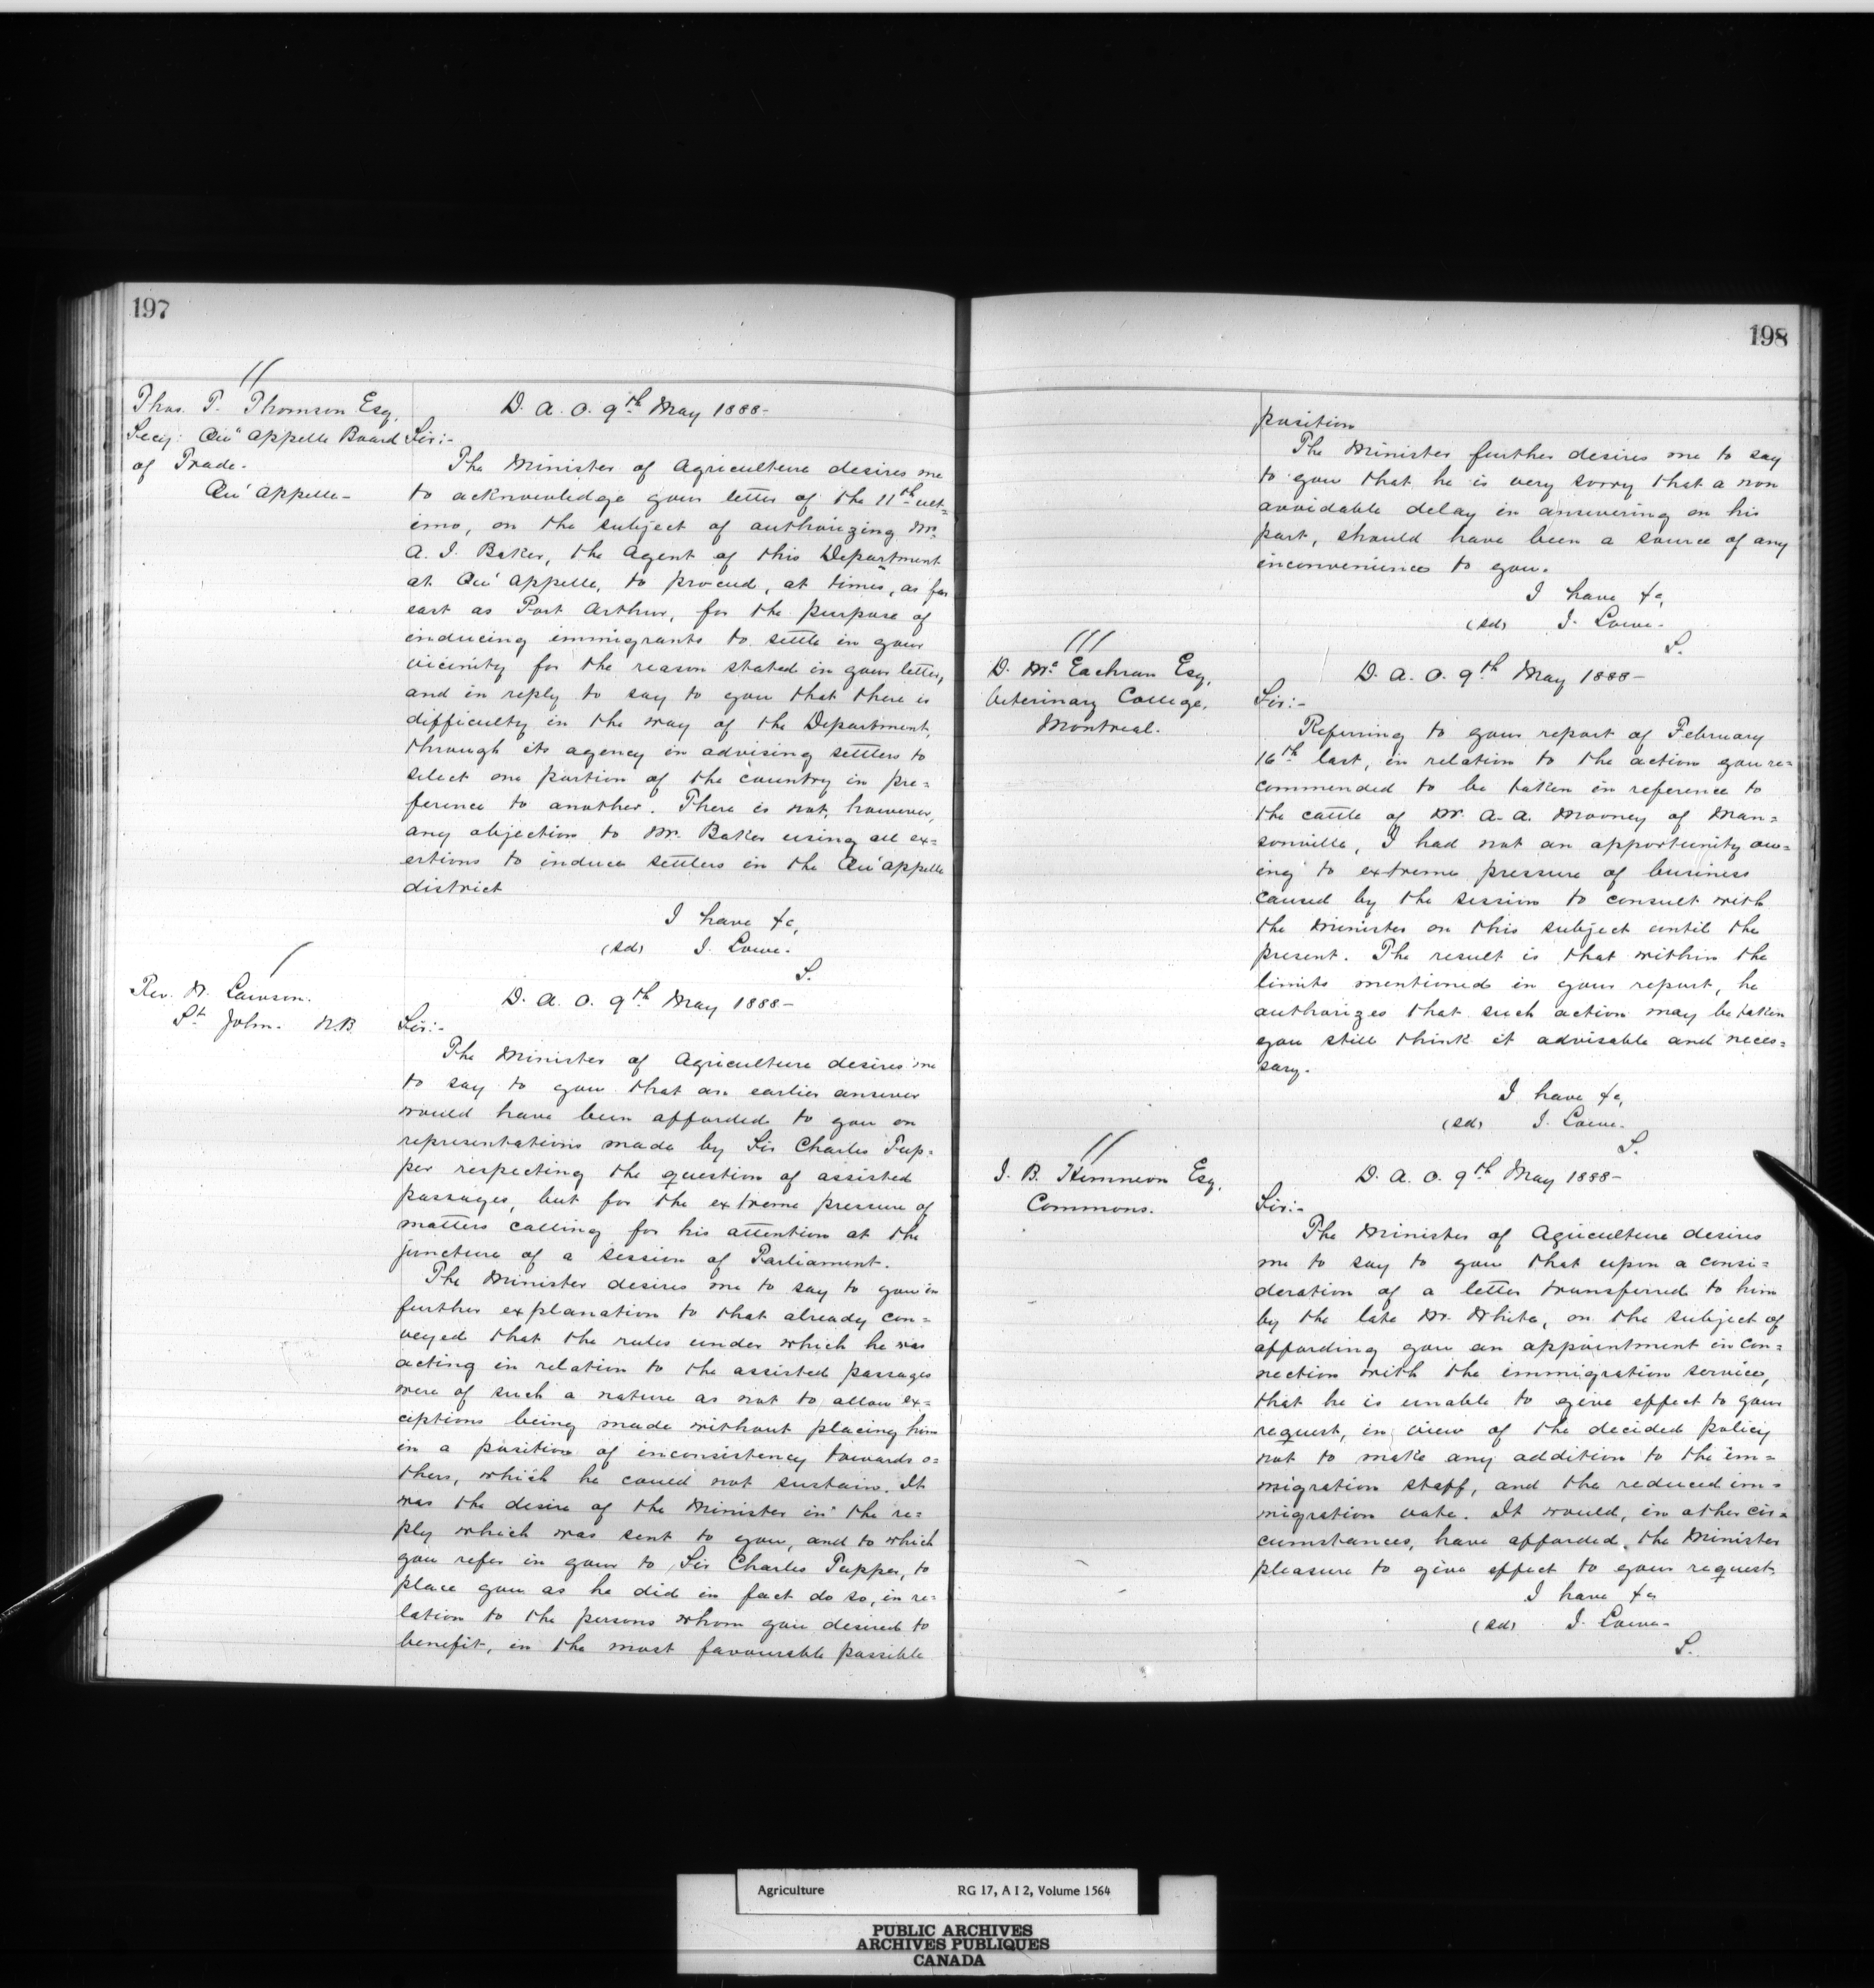 197
Thos. T. Thomson Esq.
Secy: Qu'appelle Board
of Trade.
Qu'appelle-
D. A. O. 9th May 1888-
Sir:-
The Minister of Agriculture desires me
to acknowledge your letter of the 11th ult=
imo, on the subject of authorizing Mr.
A. J. Baker, the Agent of this Department
at Qu'appelle, to proceed, at times, as far
east as Port Arthur, for the purpose of
inducing immigrants to settle in your
vicinity for the reason stated in your letter,
and in reply to say to you that there is
difficulty in the way of the Department,
through its agency in advising settlers to
select one portion of the country in pre=
ference to another. There is not, however,
any objection to Mr. Baker using all ex=
ertions to induce settlers in the Qu'appelle
district
I have &c,
(sd) J. Lowe.
S.
Rev. W. Lawson.
St John. N.B.
D. A. O. 9th May 1888-
Sir:-
The Minister of Agriculture desires me
to say to you that an earlier answer
would have been afforded to you on
representations made by Sir Charles Tup=
per respecting the question of assisted
passages, but for the extreme pressure of
matters calling for his attention at the
juncture of a session of Parliament.
The Minister desires me to say to you in
further explanation to that already con=
veyed that the rules under which he was
acting in relation to the assisted passages
were of such a nature as not to allow ex=
ceptions being made without placing him
in a position of inconsistency towards o=
thers, which he could not sustain. It
was the desire of the Minister in the re=
ply which was sent to you, and to which
you refer in your to Sir Charles Tupper, to
place you as he did in fact do so, in re=
lation to the persons whom you desired to
benefit, in the most favourable possible
198
position
The Minister further desires me to say
to you that he is very sorry that a non
avoidable delay in answering on his
part, should have been a source of any
inconvenience to you.
I have &c,
(sd) J. Lowe.
S.
D. McEachran Esq,
Veterinary College,
Montreal.
D. A. O. 9th May 1888-
Sir:-
Referring to your report of February
16th last, in relation to the action you re=
commended to be taken in reference to
the cattle of Mr. A. A. Mooney of Man=
sonville, I had not an opportunity ow=
ing to extreme pressure of business
caused by the session to consult with
the Minister on this subject until the
present. The result is that within the
limits mentioned in your report, he
authorizes that such action may be taken
you still think it advisable and neces=
sary.
I have &c,
(sd) J. Lowe.
S.
J. B. Kinneon Esq,
Commons.
D. A. O. 9th May 1888-
Sir:-
The Minister of Agriculture desires
me to say to you that upon a consi=
deration of a letter transferred to him
by the late Mr. White, on the subject of
affording you an appointment in con=
nection with the immigration service,
that he is unable to give effect to your
request, in view of the decided policy
not to make any addition to the im=
migration staff, and the reduced im=
migration vote. It would, in other cir=
cumstances, have afforded, the Minister
pleasure to give effect to your request.
I have &c
(sd) J. Lowe-
S.
Agriculture RG 17, A I 2, Volume 1564
PUBLIC ARCHIVES
ARCHIVES PUBLIQUES
CANADA